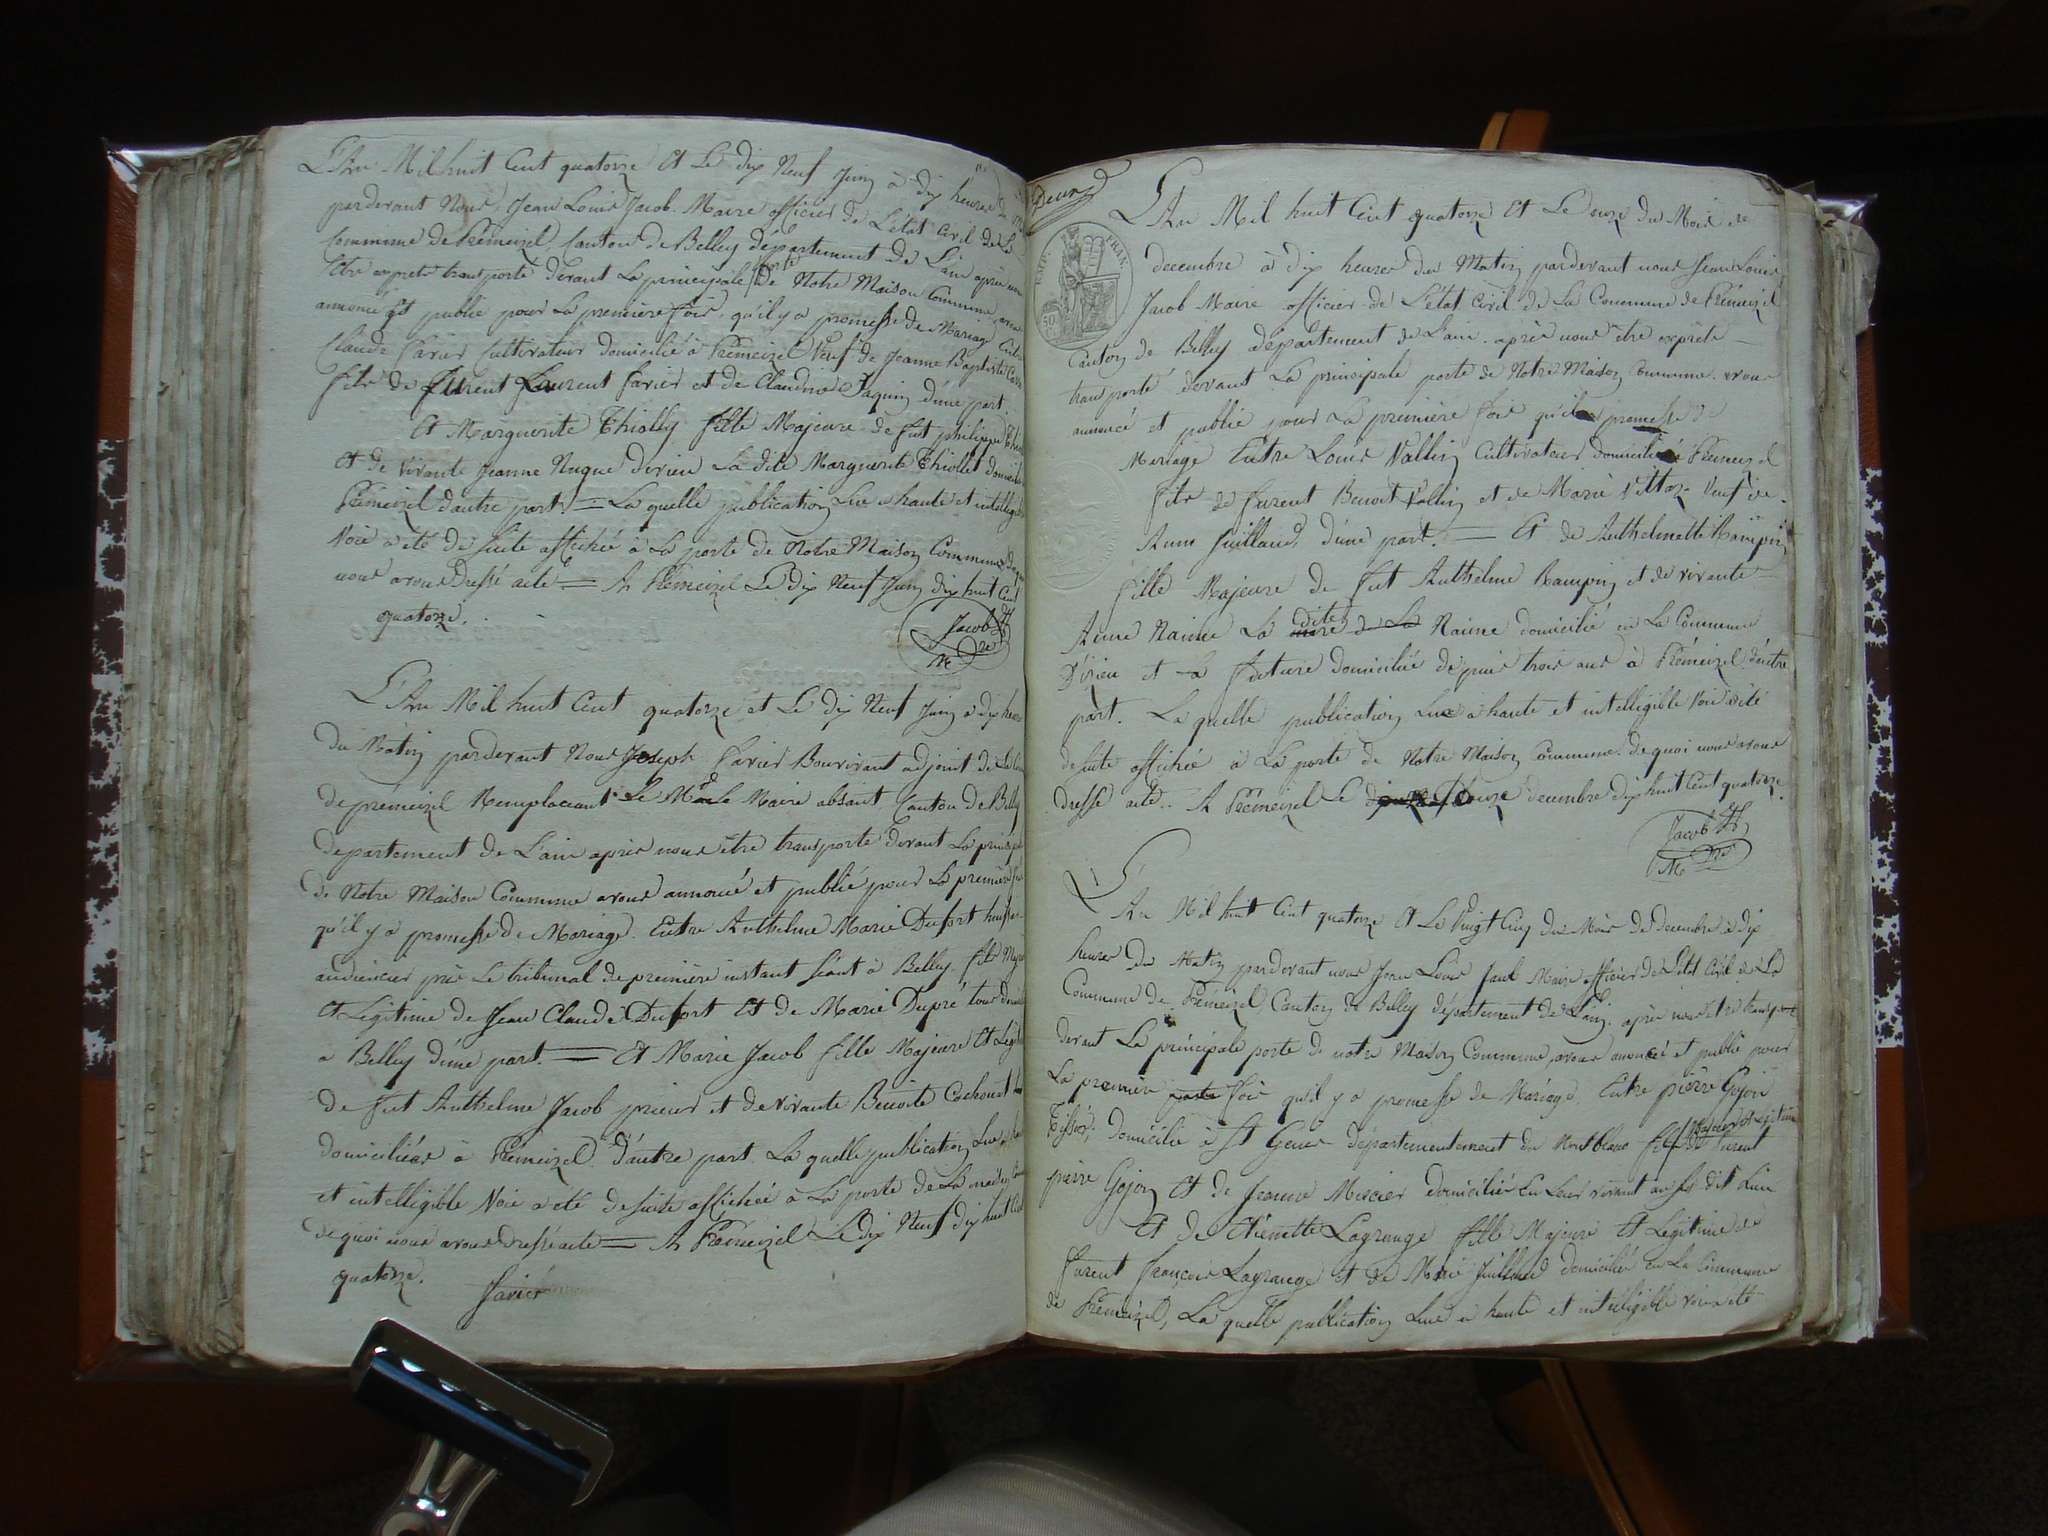 L'An Mil huit Cent quatorze et Le dix Neuf Juin à dix heures
pardevant Nous Jean Louis Jacob Maire officier de L'état Civil de La
Commune de Prémeizel Canton de Belley département de L'ain après nous
être exprets transporté devant La principale porte de Notre Maison Commune avons
annoncé et publié pour La premiere fois, qu'il y a promesse de Mariage Entre
Claude Favier Cultivateur domicilié à Prémeizel Veuf de Jeanne Baptiste
fils de furent Laurent Favier et de Claudine Jaquin d'une part.
Et Marguerite Thiolly fille Majeure de fut philippe
et de vivante Jeanne Nugue La dite Marguerite Thiollet
Prémeizel d'autre part = La quelle publication Lue a haute et intelligible
Voie à été de suite affichée à La porte de Notre Maison Commune de quoi
nous avons Dressé acte = A Prémeizel Le dix Neuf Juin dix huit Cent
quatorze.
Jacob
M re
L'An Mil huit Cent quatorze et Le dix Neuf Juin à dix heures
du Matin pardevant Nous Joseph Favier Bouvivant adjoint de La
de prémeizel Remplaceant Le Maire absant Canton de Belley
département de L'ain après nous être transporté devant La principale
de Notre Maison Commune avons annoncé et publié pour La premiere fois
qu'il y a promesse de Mariage. Entre Anthelme Marie Dufort huissier
audiencier près Le tribunal de première instant séant à Belley, fils Majeur
et Légitime de Jean Claude Dufort et de Marie Dupré tous
a Belley d'une part. = Et Marie Jacob fille Majeure et Légitime
de fut Anthelme Jacob prieur et de vivante Benoite Cochonat
domiciliées à Prémeizel d'autre part La quelle publication Lue
et intelligible Voie a été de suite affichée à La porte de La maison
de quoi nous avons dressé acte = A Prémeizel Le dix Neuf dix huit Cent
quatorze. Favier
Deux
EMP. FRAN.
50
L'An Mil huit Cent quatorze et Le onze du Mois de
decembre à dix heures du Matin pardevant nous Jean Louis
Jacob Maire officier de L'état Civil de La Commune de Prémeizel
Canton de Belley département de L'ain. après nous être exprèts
transporté devant La principale porte de Notre Maison Commune. avons
annoncé et publié pour La première fois qu'il promesse de
Mariage Entre Louis Vallin Cultivateur domicilié Prémeizel
fils de furent Benoit Vallin et de Marie Vittoz Veuf de
Anne Guilland, d'une part. = Et de Anthelmette Rampin
fille Majeure de fut Anthelme Rampin et de vivante
Anne Naime La dite Naime domicilié en La Commune
D'izieu et La future domiciliée depuis trois ans à Prémeizel d'autre
part. La quelle publication Lue à haute et intelligible Voie a été
de suite affichée à La porte de Notre Maison Commune. de quoi nous avons
dressé acte. A Prémeizel Le onze decembre dix huit Cent quatorze.
Jacob
M re
L'An Mil huit Cent quatorze et Le Vingt Cinq du Mois de Decembre à dix
heures du Matin pardevant nous Jean Louis Jacob Maire officier de L'état Civil de La
Commune de Prémeizel Canton de Belley département de L'ain. après nous être transporté
devant La principale porte de notre Maison Commune, avons annoncé et publié pour
La premiere porte fois qu'il y a promesse de Mariage. Entre pierre Gojon
Tissier, domicilié à St Genis departementement du Montblanc fils Majeur et Légitime de furent
pierre Gojon et de Jeanne Mercier domiciliés En Leur vivant au sus dit Lieu
Et de Etiennette Lagrange fille Majeure et Légitime de
furent François Lagrange et de Marie Guilland domicilié en La Commune
de Prémeizel, La quelle publication Lue a haute et intelligible voie a été